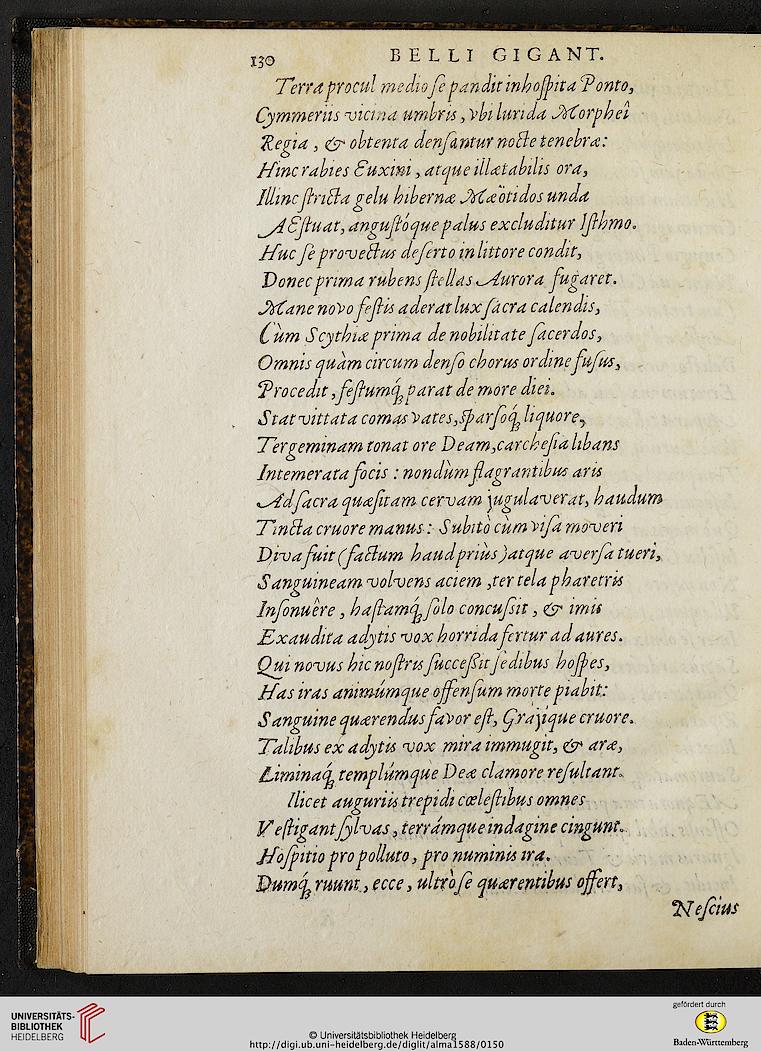 130 BELLI GIGANT.
Terra procul medio ſe pandit inhoſpita Ponto,
Cymmeriis vicina umbris, vbi lurida Morpheî
Regia, & obtenta denſantur nocte tenebræ:
Hinc rabies Euxini, atque illætabilis ora,
Illinc ſtricta gelu hibernæ Mæötidos unda
AEſtuat, anguſtóque palus excluditur Iſthmo.
Huc ſe provectus deſerto in littore condit,
Donec prima rubens ſtellas Aurora fugaret.
Mane novo feſtis aderat lux ſacra calendis,
Cùm Scythiæ prima de nobilitate ſacerdos,
Omnis quàm circum denſo chorus ordine fuſus,
Procedit, feſtumq́ꝫ parat de more diei.
Stat vittata comas vates, ſparſoq́ꝫ liquore,
Tergeminam tonat ore Deam, carcheſia libans
Intemerata focis: nondùm flagrantibus aris
Ad ſacra quæſitam cervam jugulaverat, haudum
Tincta cruore manus: Subitò cùm viſa moveri
Diva fuit (factum haud priùs) atque averſa tueri,
Sanguineam volvens aciem, ter tela pharetris
Inſonuêre, haſtamq́ꝫ ſolo concuſsit, & imis
Exaudita adytis vox horrida fertur ad aures.
Qui novus hic noſtris ſucceſsit ſedibus hoſpes,
Has iras animúmque offenſum morte piabit:
Sanguine quærendus favor eſt, Grajique cruore.
Talibus ex adytis vox mira immugit, & aræ,
Liminaq́ꝫ templúmque Deæ clamore reſultant.
Ilicet auguriis trepidi cœleſtibus omnes
Veſtigant ſylvas, terrámque indagine cingunt.
Hoſpitio pro polluto, pro numinis ira.
Dumq́ꝫ ruunt, ecce, ultrò ſe quærentibus offert,
Neſcius
UNIVERSITÄTS-
BIBLIOTHEK
HEIDELBERG
© Universitätsbibliothek Heidelberg
http://digi.ub.uni-heidelberg.de/diglit/alma1588/0150
gefördert durch
Baden-Württemberg